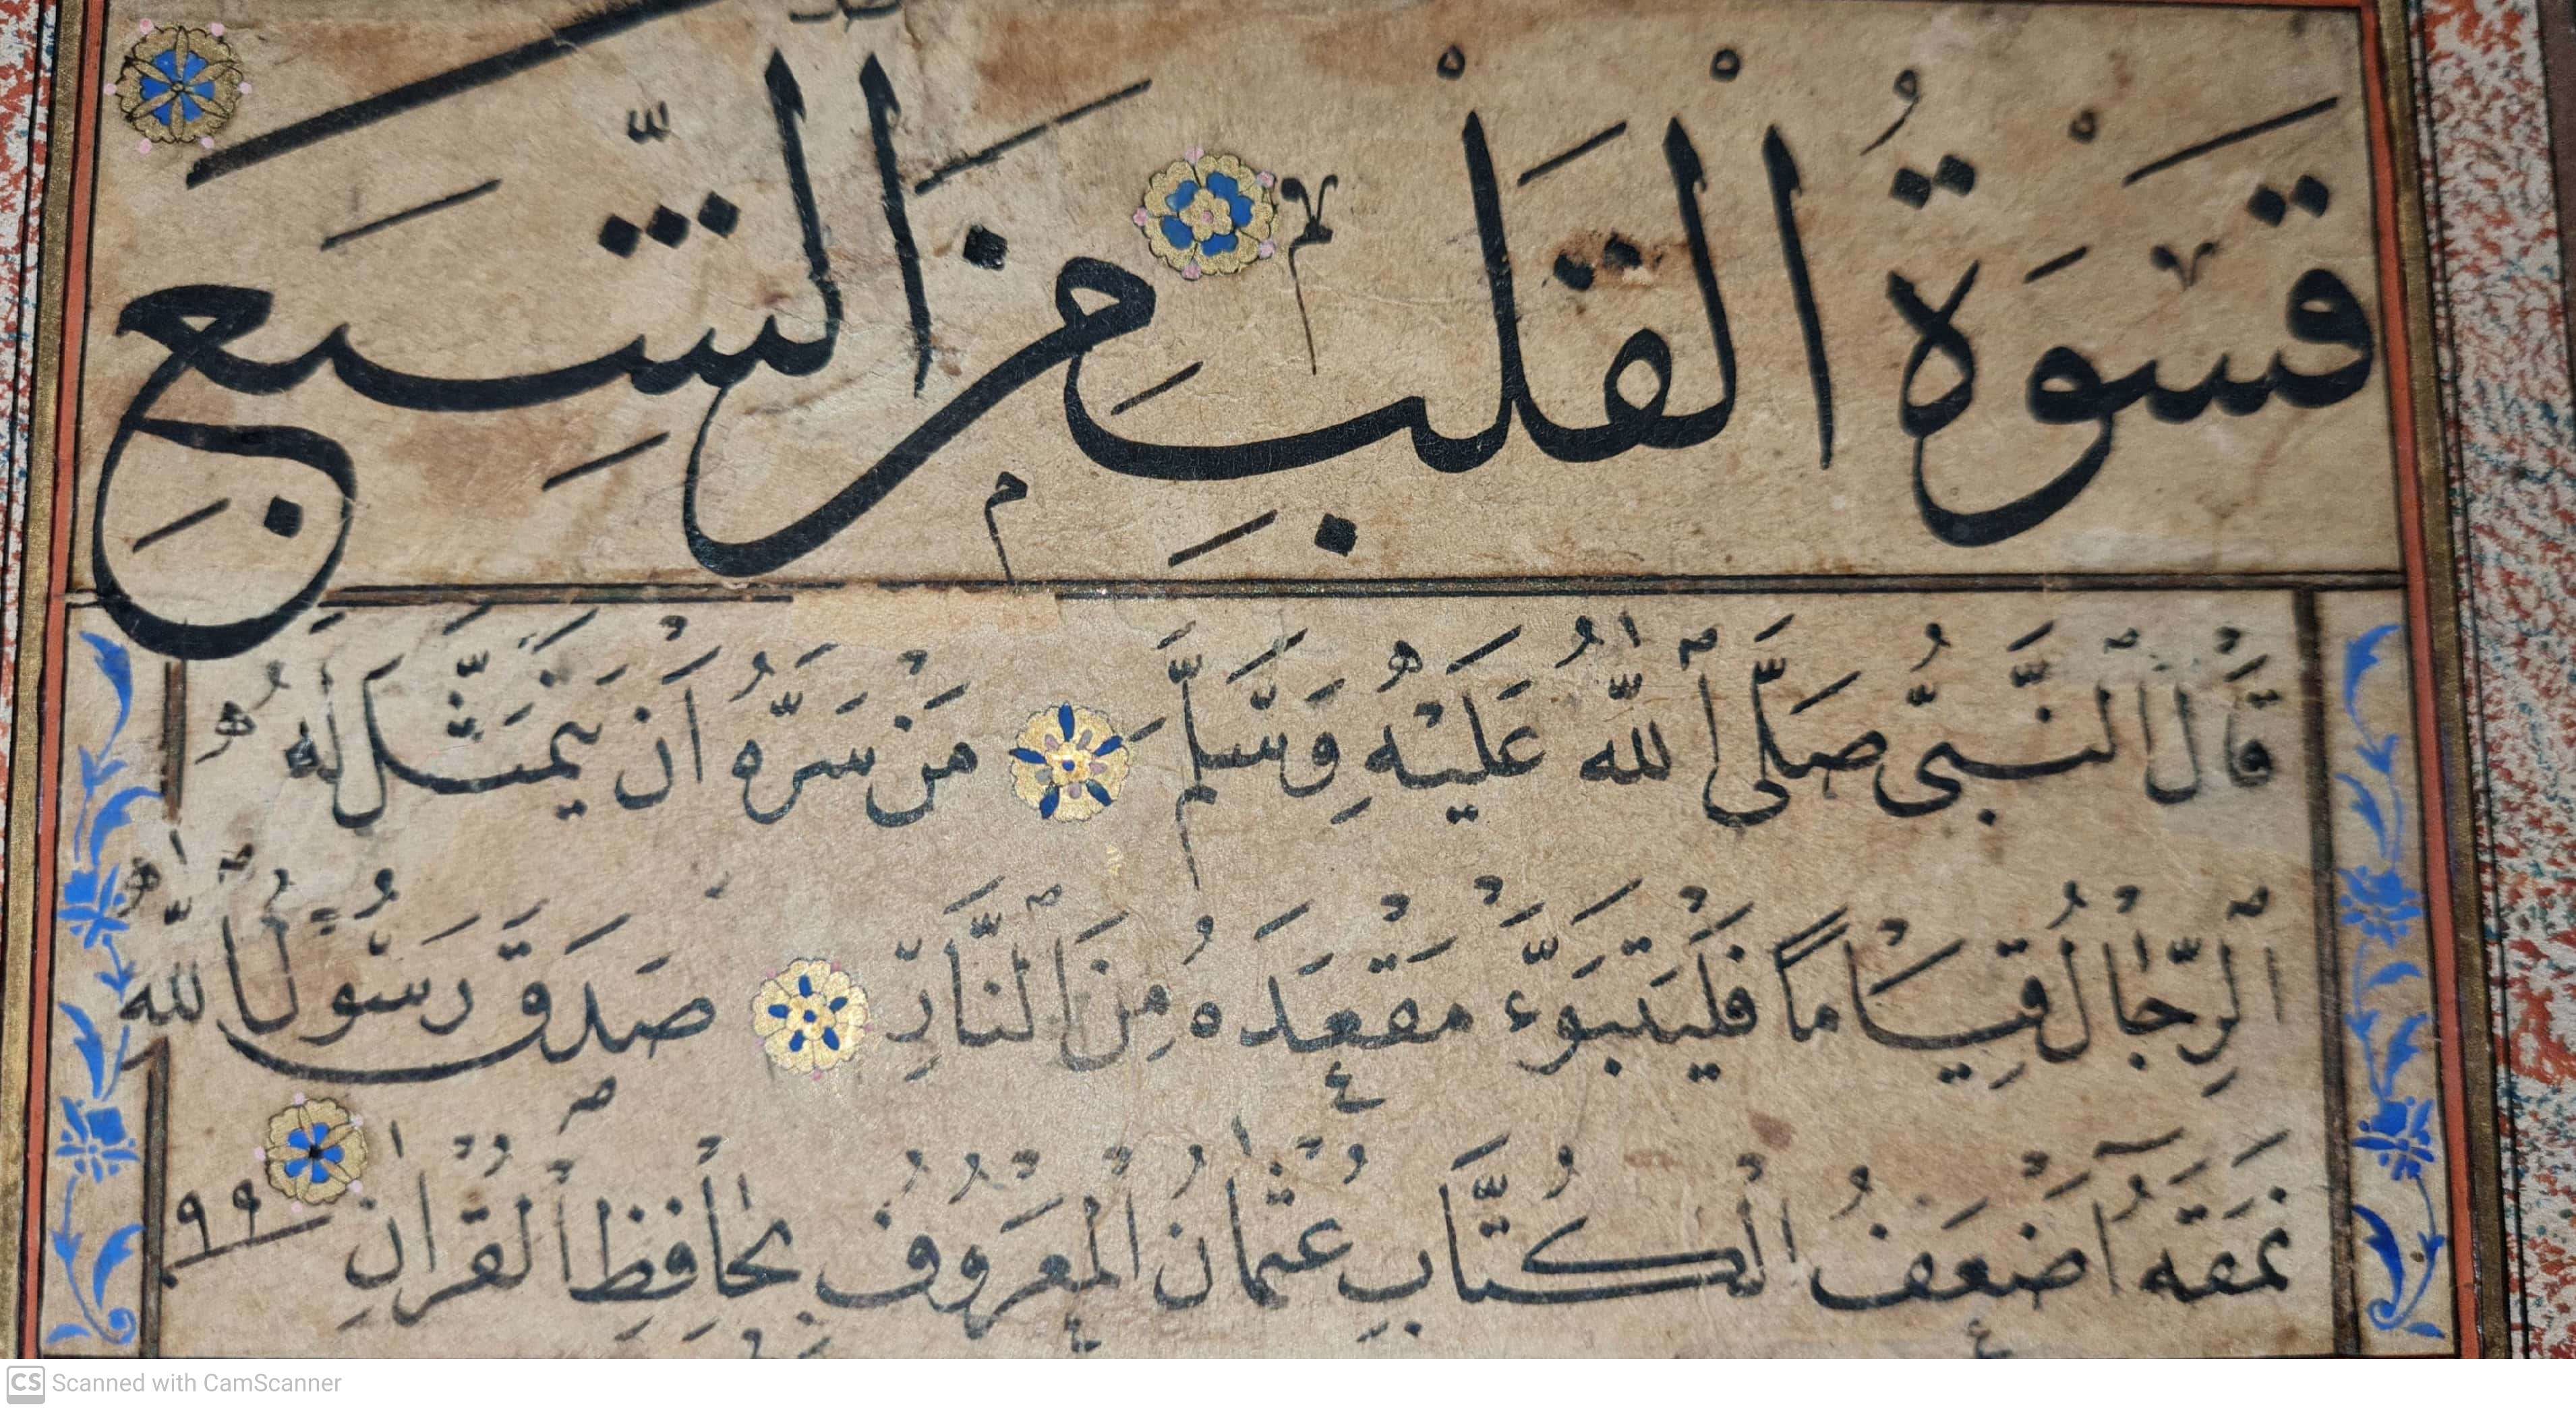 قَسْوَةُ الْقَلْبِ مِنَ الشِّبَعِ
قَالَ النَّبِىُّ صَلَّى اللّٰهُ عَلَيْهِ وَسَلَّمَ مَنْ سَرَّهُ اَنْ يَتَمَثَّلَ لَهُ
الرِّجَالُ قِيَامًا فَلْيَتَبَوَّءْ مَقْعَدَهُ مِنَ النَّارِ صَدَقَ رَسُولُ اللّٰهِ
نَمَقَهُ اَضْعَفُ الْكُتَّابِ عُثْمَانُ الْمَعْرُوفُ بِحَافِظِ الْقُرْاٰنِ ٩٩
Scanned with CamScanner